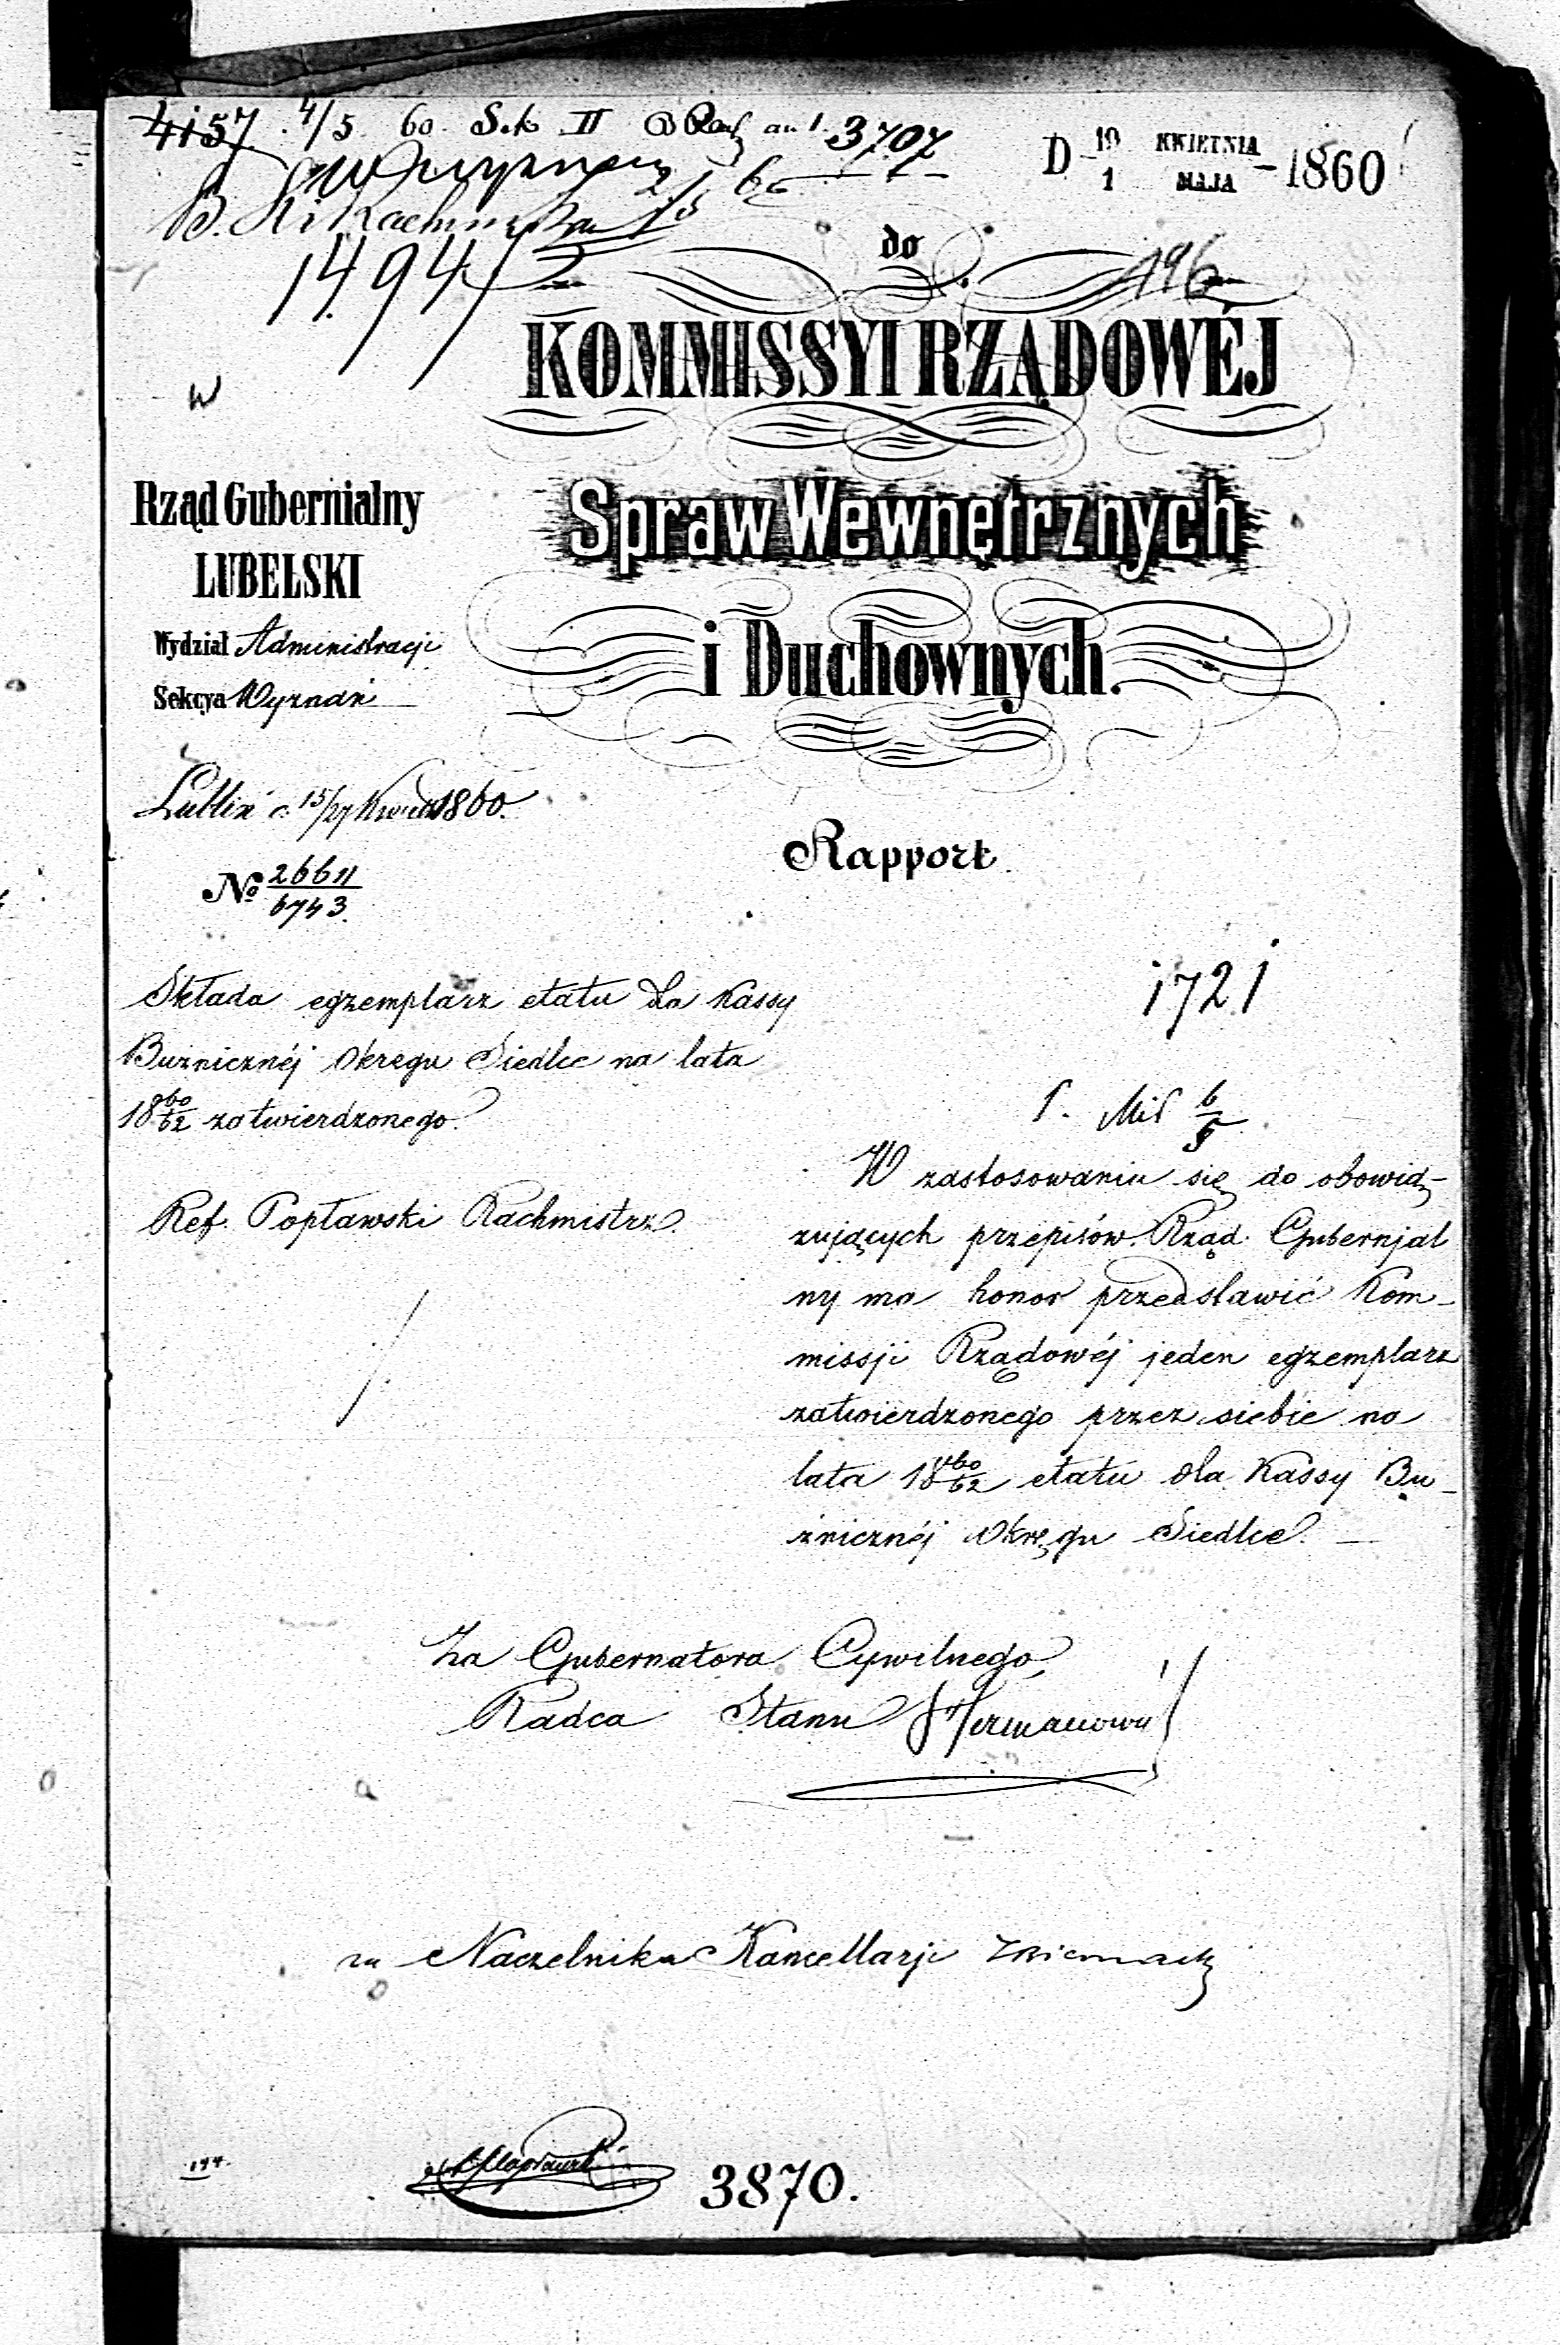 4157. 4/5 60. Sek II 3707
D 19 KWIETNIA
1 MAJA - 1860
1494
196
do
KOMMISSYI RZĄDOWÉJ
W
Rząd Gubernialny
LUBELSKI
Spraw Wewnętrznych
i Duchownych.
Wydział Administracji
Sekcya Wyznań
Lublin d. 15/27 Kwiet 1860.
Rapport
No 26611
6743.
1721
Składa egzemplarz etatu dla Kassy
Bużnicznéj Okręgu Siedlce na lata
18 60/62 zatwierdzonego.
Ref. Popławski Rachmistrz.
W zastosowaniu się do obowią-
zujących przepisów Rząd Gubernjal
ny ma honor przedstawić Kom-
missji Rządowéj jeden egzemplarz
zatwierdzonego przez siebie na
lata 18 60/62 etatu dla Kassy Bu-
żnicznéj Okręgu Siedlce. —
Za Gubernatora Cywilnego,
Radca Stanu
za Naczelnika Kancellarji
144.
3870.